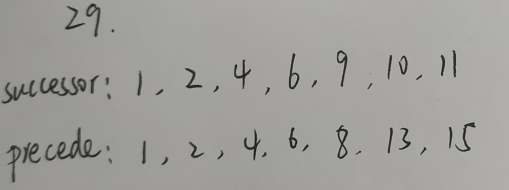 29.
successor: 1, 2, 4, 6, 9, 10, 11
precede: 1, 2, 4, 6, 8, 13, 15